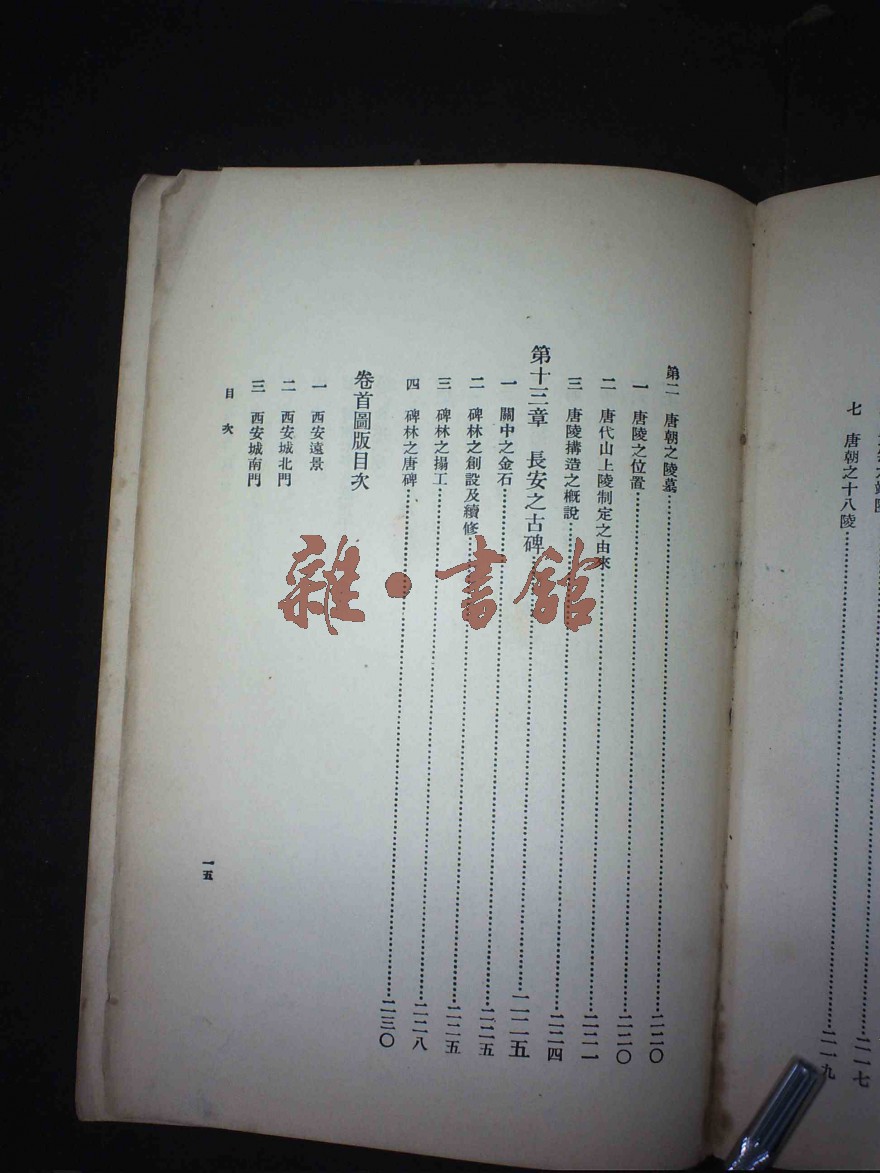 二一七
七 唐朝之十八陵……二一九
第二 唐朝之陵墓……二二〇
一 唐陵之位置……二二〇
二 唐代山上陵制定之由來……二二一
三 唐陵搆造之概說……二二四
第十三章 長安之古碑……二二五
一 關中之金石……二二五
二 碑林之創設及續修……二二五
三 碑林之搨工……二二八
四 碑林之唐碑……二三〇
卷首圖版目次
一 西安遠景
二 西安城北門
三 西安城南門
目次
一五
雜·書館